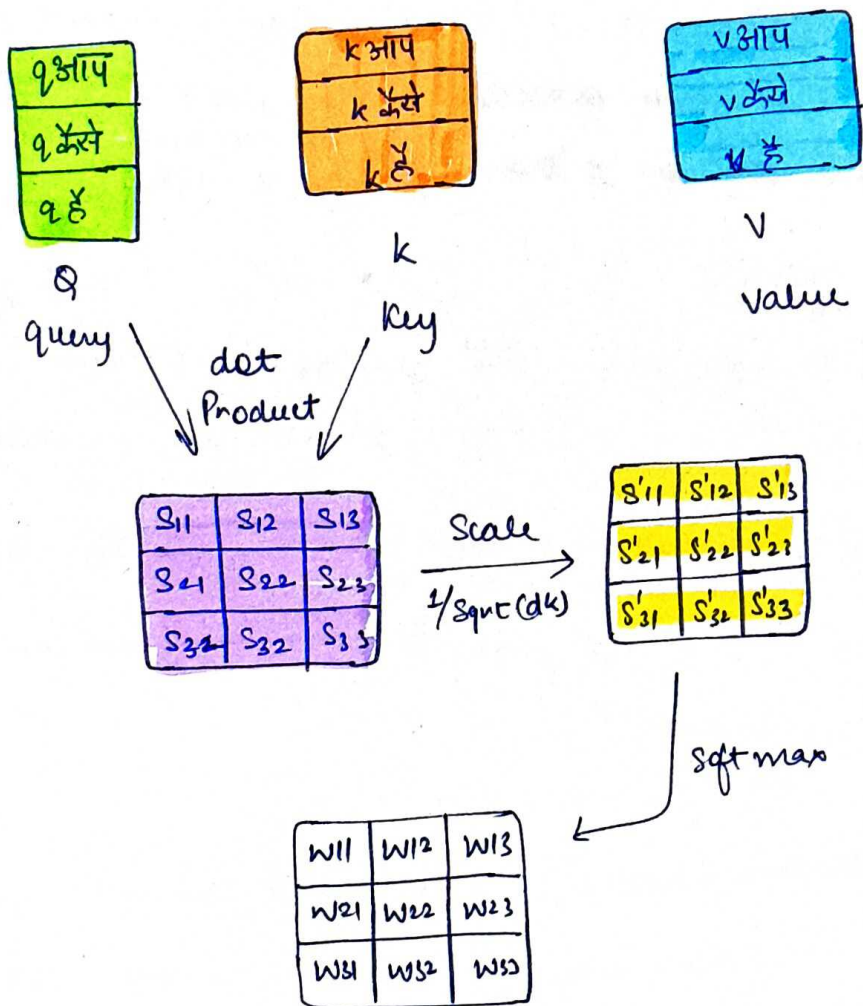 qआप
qकैसे
q हैं
Q
query
k आप
k कैसे
k हैं
k
Key
v आप
v कैसे
v हैं
V
value
dot
Product
S11 S12 S13
S21 S22 S23
S31 S32 S33
Scale
1/Sqrt(dk)
S'11 S'12 S'13
S'21 S'22 S'23
S'31 S'32 S'33
Softmax
W11 W12 W13
W21 W22 W23
W31 W32 W33